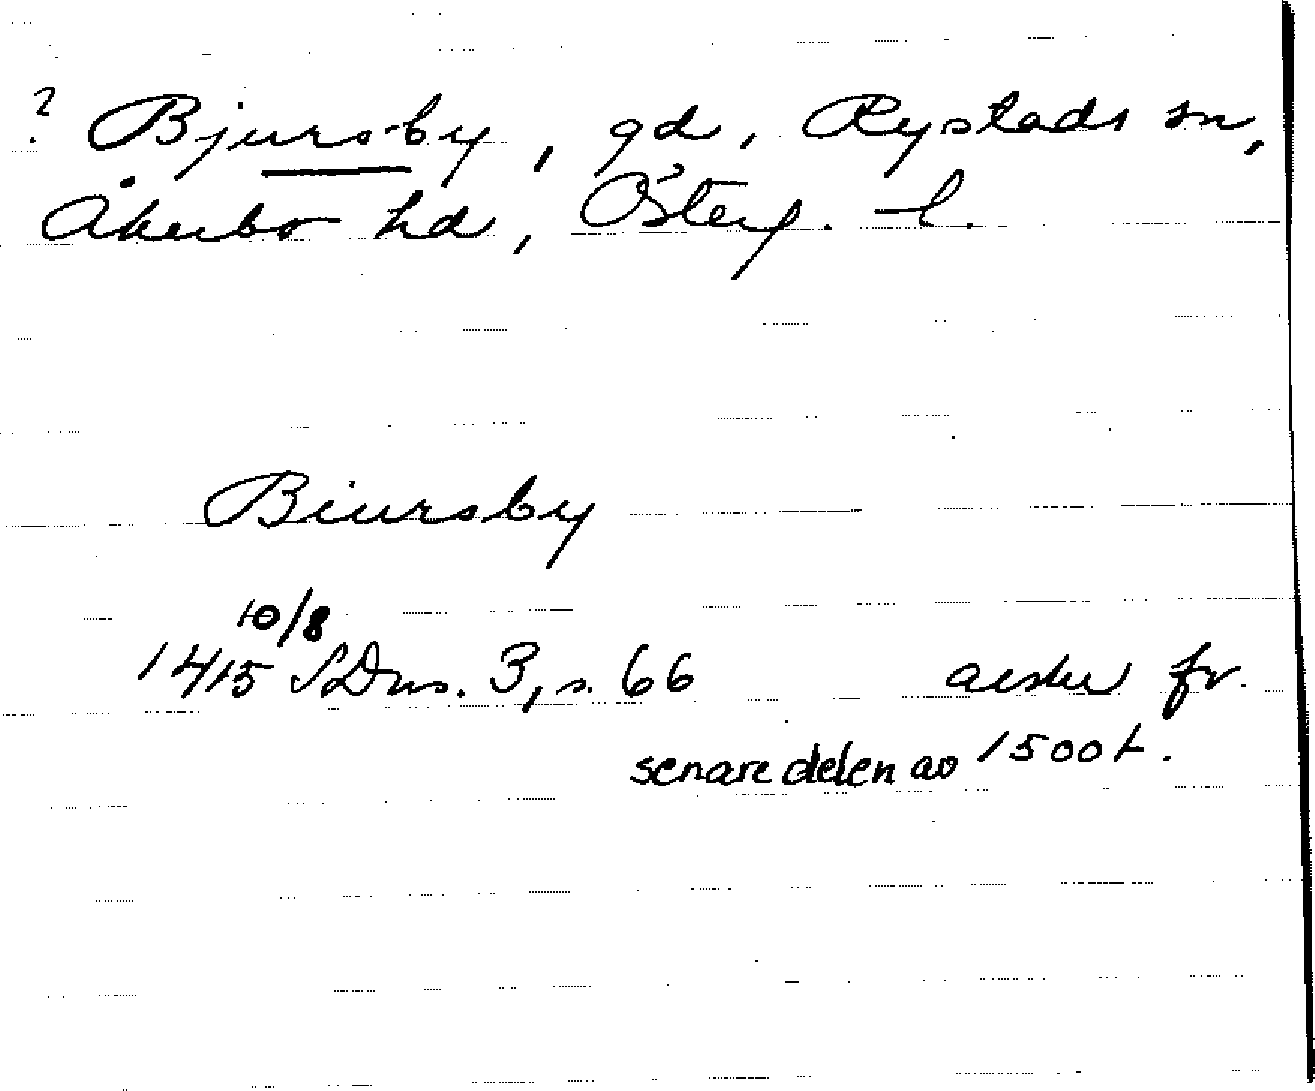 ? Bjursby, gd, Rystads sn,
Åkerbo hd, Österg. l.
Biursby
10/8
1415 SDns. 3, s. 66 avskr fr.
senare delen av 1500 t.